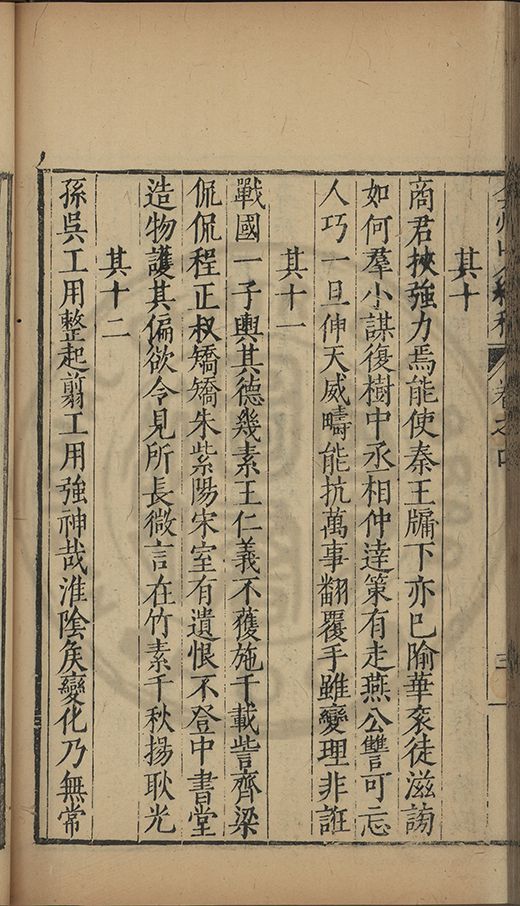 弇州山人續稿 卷之四 三
其十
商君挾強力焉能使秦王牖下亦已隃華袞徒滋謗
如何羣小謀復樹中丞相仲達策有走燕公讐可忘
人巧一旦伸天威疇能抗萬事翻覆手雖變理非誑
其十一
戰國一子輿其德幾素王仁義不獲施千載訾齊梁
侃侃程正叔矯矯朱紫陽宋室有遺恨不登中書堂
造物護其偏欲令見所長微言在竹素千秋揚耿光
其十二
孫吳工用整起翦工用強神哉淮陰矦變化乃無常